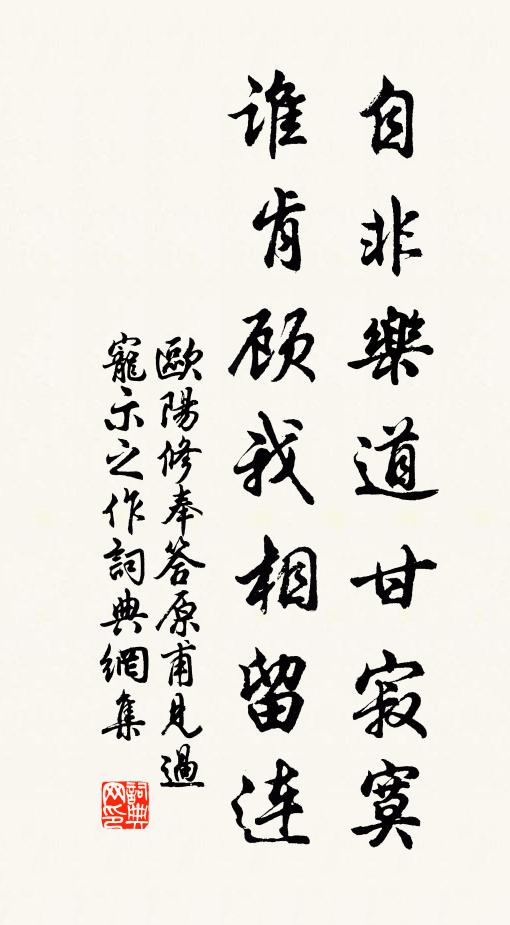 自非樂道甘寂寞
谁肯顾我相留连
歐陽修奉答原甫見過
寵示之作詞典網集
詞典
网印